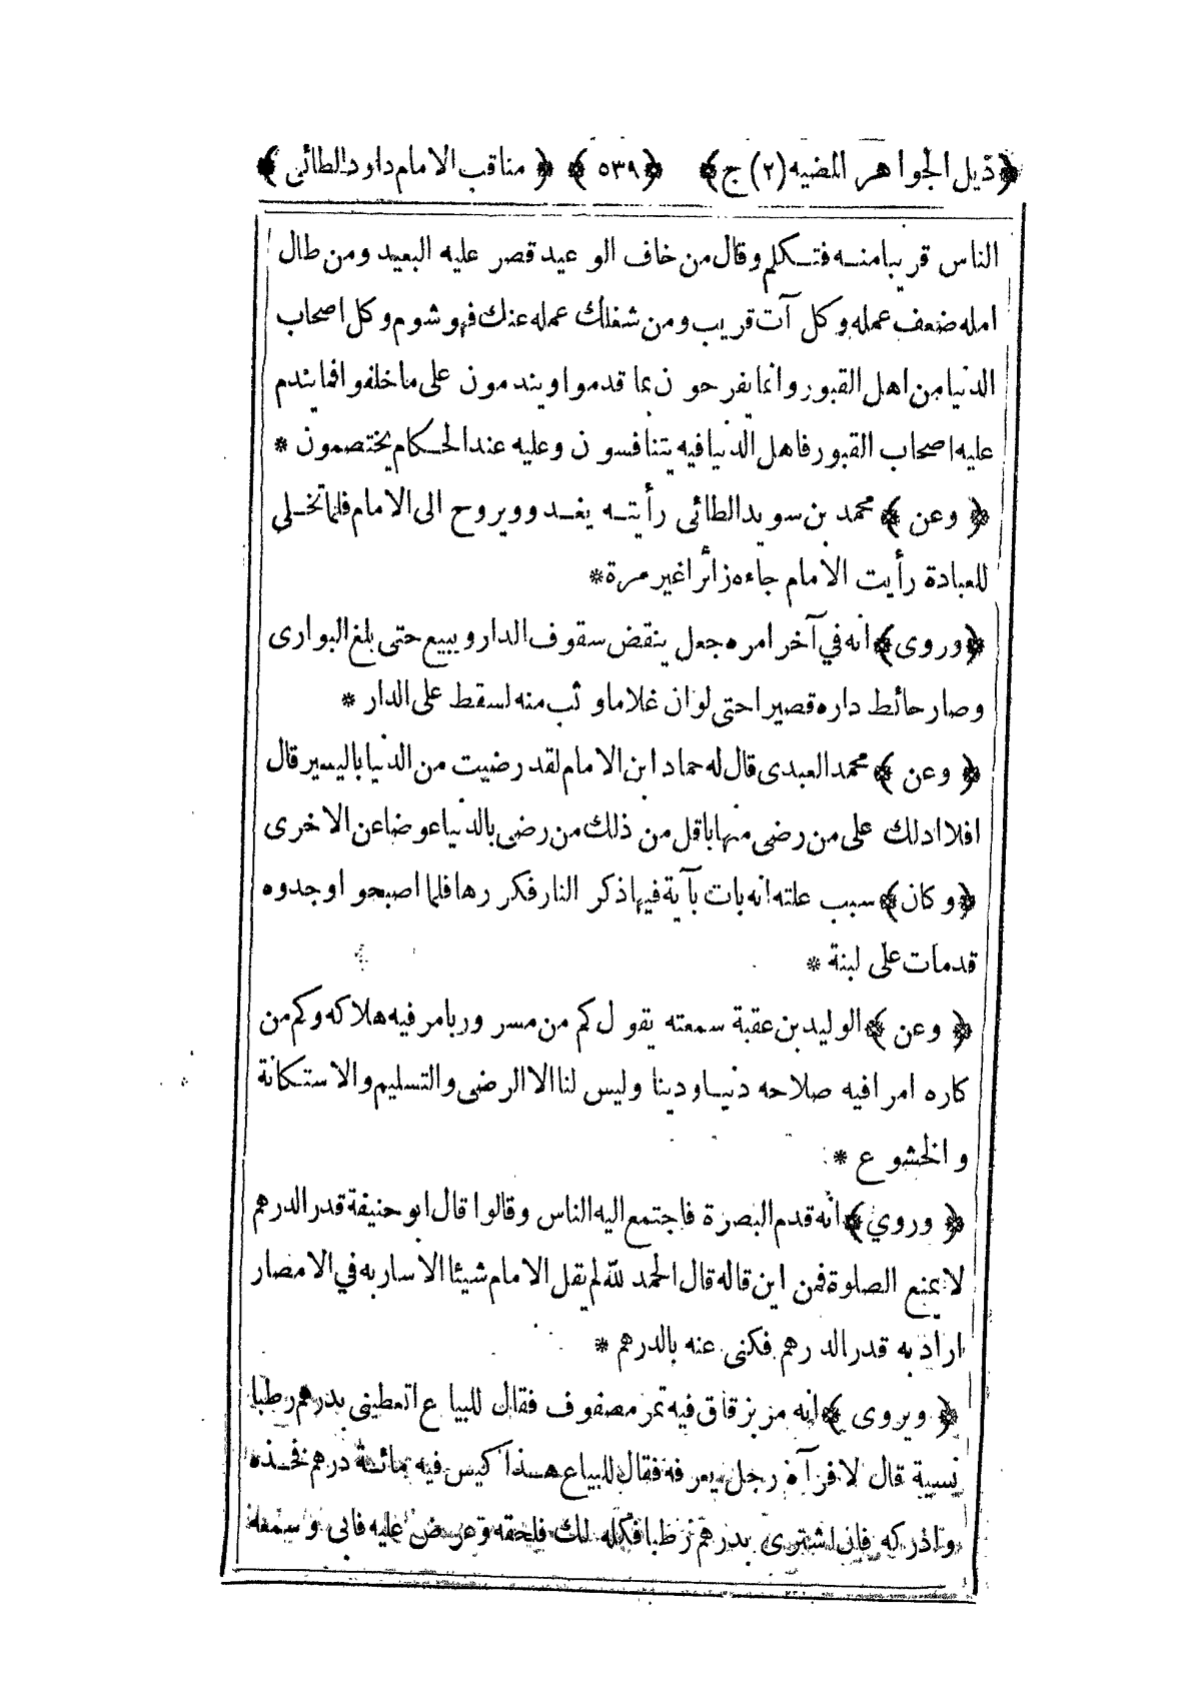 ﴿ ذيل الجواهر المضيه (٢) ج ﴾ ﴿ ٥٣٩ ﴾ ﴿ مناقب الامام داود الطائى ﴾
الناس قريبا منه فتكلم وقال من خاف الوعيد قصر عليه البعيد ومن طال
امله ضعف عمله وكل آت قريب ومن شغلك عمله عنك فهو شوم وكل اصحاب
الدنيا من اهل القبور وانما يفرحون بما قدموا ويندمون على ما خلفوا فما يندم
عليه اصحاب القبور فاهل الدنيا فيه يتنافسون وعليه عند الحكام يختصمون *
﴿ وعن ﴾ محمد بن سويد الطائى رأيته يغدو ويروح الى الامام فلما تخلى
للعبادة رأيت الامام جاءه زائرا غير مرة *
﴿ وروى ﴾ انه في آخر امره جعل ينقض سقوف الدار ويبيع حتى بلغ البوارى
وصار حائط داره قصيرا حتى لو ان غلاما وثب منه لسقط على الدار *
﴿ وعن ﴾ محمد العبدى قال له حماد ابن الامام لقد رضيت من الدنيا باليسير قال
افلا ادلك على من رضى منها باقل من ذلك من رضى بالدنيا عوضا عن الاخرى
﴿ وكان ﴾ سبب علته انه بات بآية فيها ذكر النار فكررها فلما اصبحوا وجدوه
قد مات على لبنة *
﴿ وعن ﴾ الوليد بن عقبة سمعته يقول كم من مسر وربا مر فيه هلاكه وكم من
كاره امرا فيه صلاحه دنيا ودينا وليس لنا الا الرضى والتسليم والاستكانة
والخشوع *
﴿ وروي ﴾ انه قدم البصرة فاجتمع اليه الناس وقالوا قال ابو حنيفة قدر الدرهم
لا يمنع الصلوة فمن اين قاله قال الحمد لله لم يقل الامام شيئا الا سار به في الامصار
اراد به قدر الدرهم فكنى عنه بالدرهم *
﴿ ويروى ﴾ انه مر بزقاق فيه تمر مصفوف فقال للبياع اتعطينى بدرهم رطبا
نسية قال لا فرآه رجل يعرفه فقال للبياع هذا كيس فيه مائة درهم فخذه
وادركه فان اشترى بدرهم رطبا فكله لك فلحقه وعرض عليه فابى وسمعه